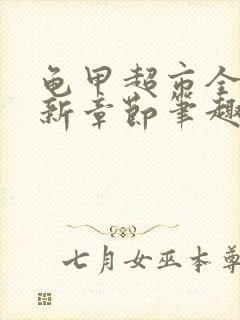 龟甲超市全
新章节笔趣
七月女巫本尊